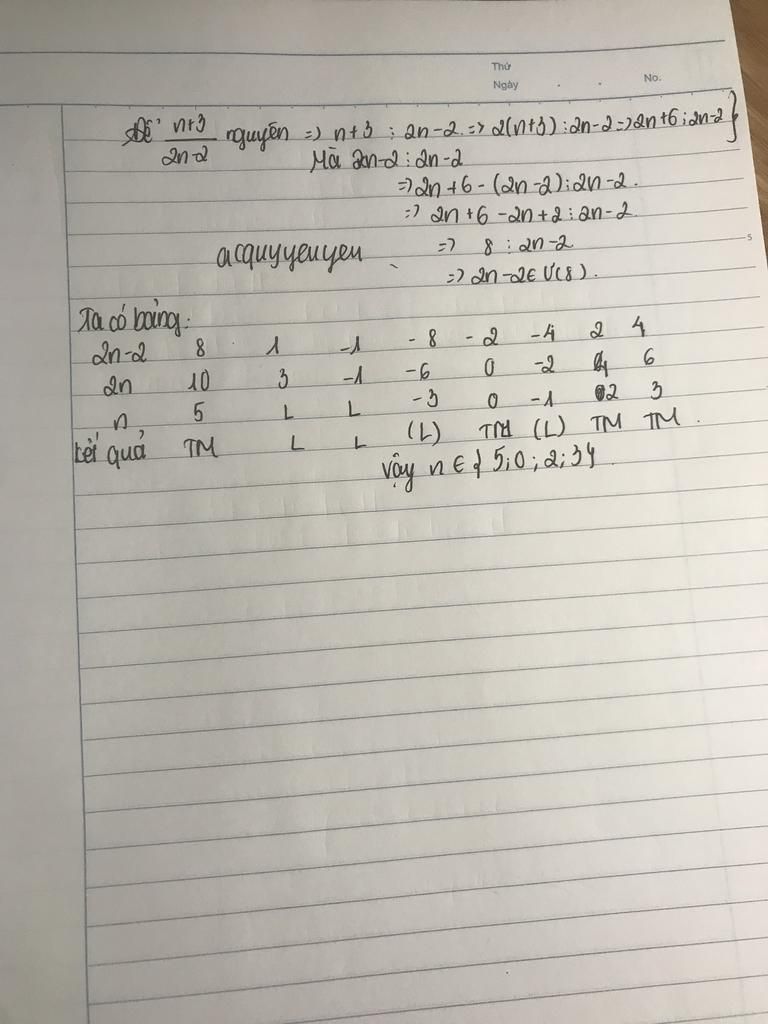 Thứ
Ngày . . No.
Để n+3/2n-2 nguyên => n+3 ⋮ 2n-2 => 2(n+3) ⋮ 2n-2 => 2n+6 ⋮ 2n-2 }
Mà 2n-2 ⋮ 2n-2
=> 2n+6-(2n-2) ⋮ 2n-2.
=> 2n+6-2n+2 ⋮ 2n-2
=> 8 ⋮ 2n-2
acquyyeuyeu
=> 2n-2 ∈ Ư(8).
5
Ta có bảng:
2n-2 8 1 -1 -8 -2 -4 2 4
2n 10 3 -1 -6 0 -2 4 6
n 5 L L -3 0 -1 2 3
kết quả TM L L (L) TM (L) TM TM.
Vậy n ∈ { 5; 0; 2; 3}